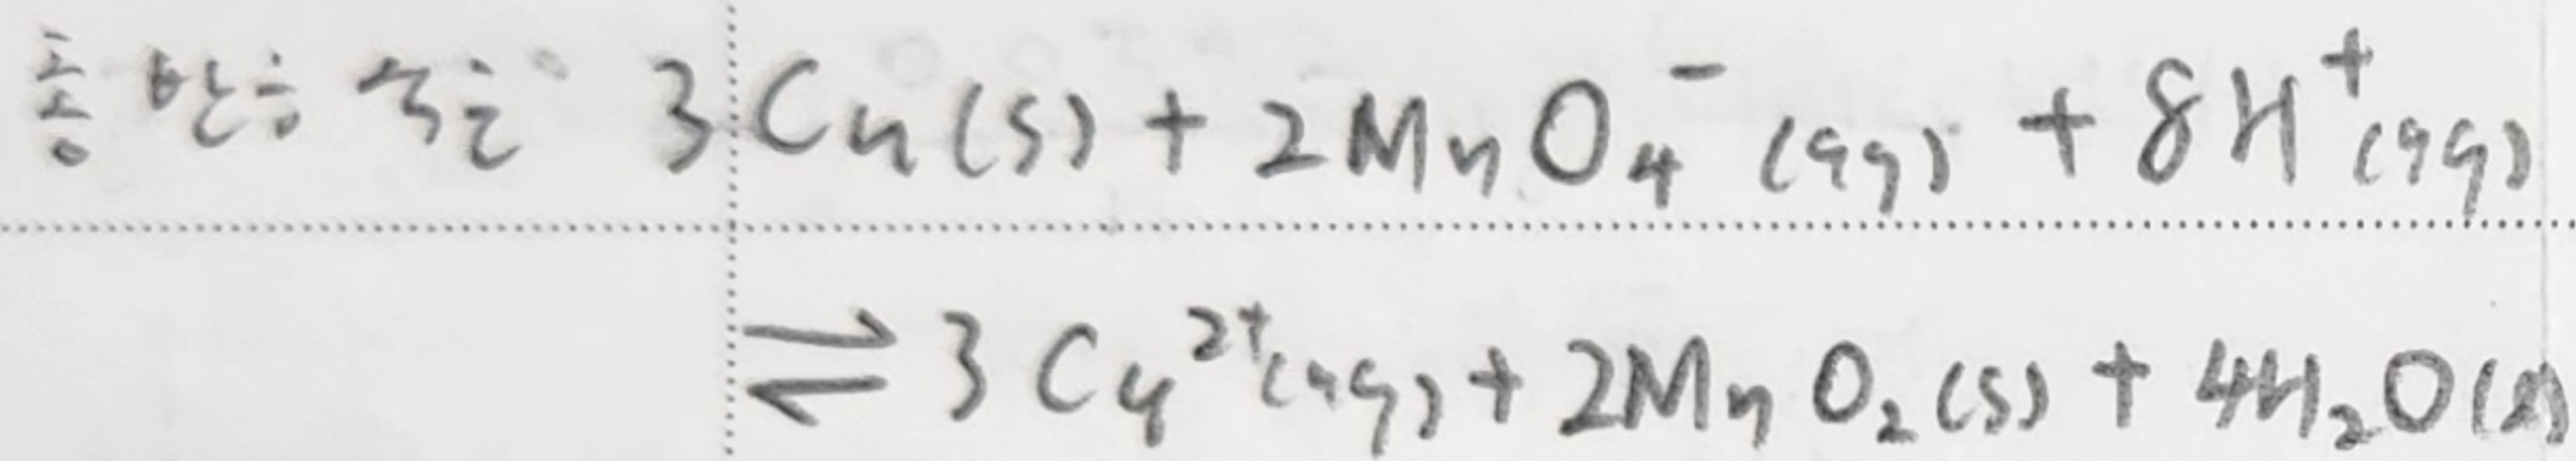 총 반응 식은 3Cu(s) + 2MnO₄⁻(aq) + 8H⁺(aq)
⇌ 3Cu²⁺(aq) + 2MnO₂(s) + 4H₂O(l)